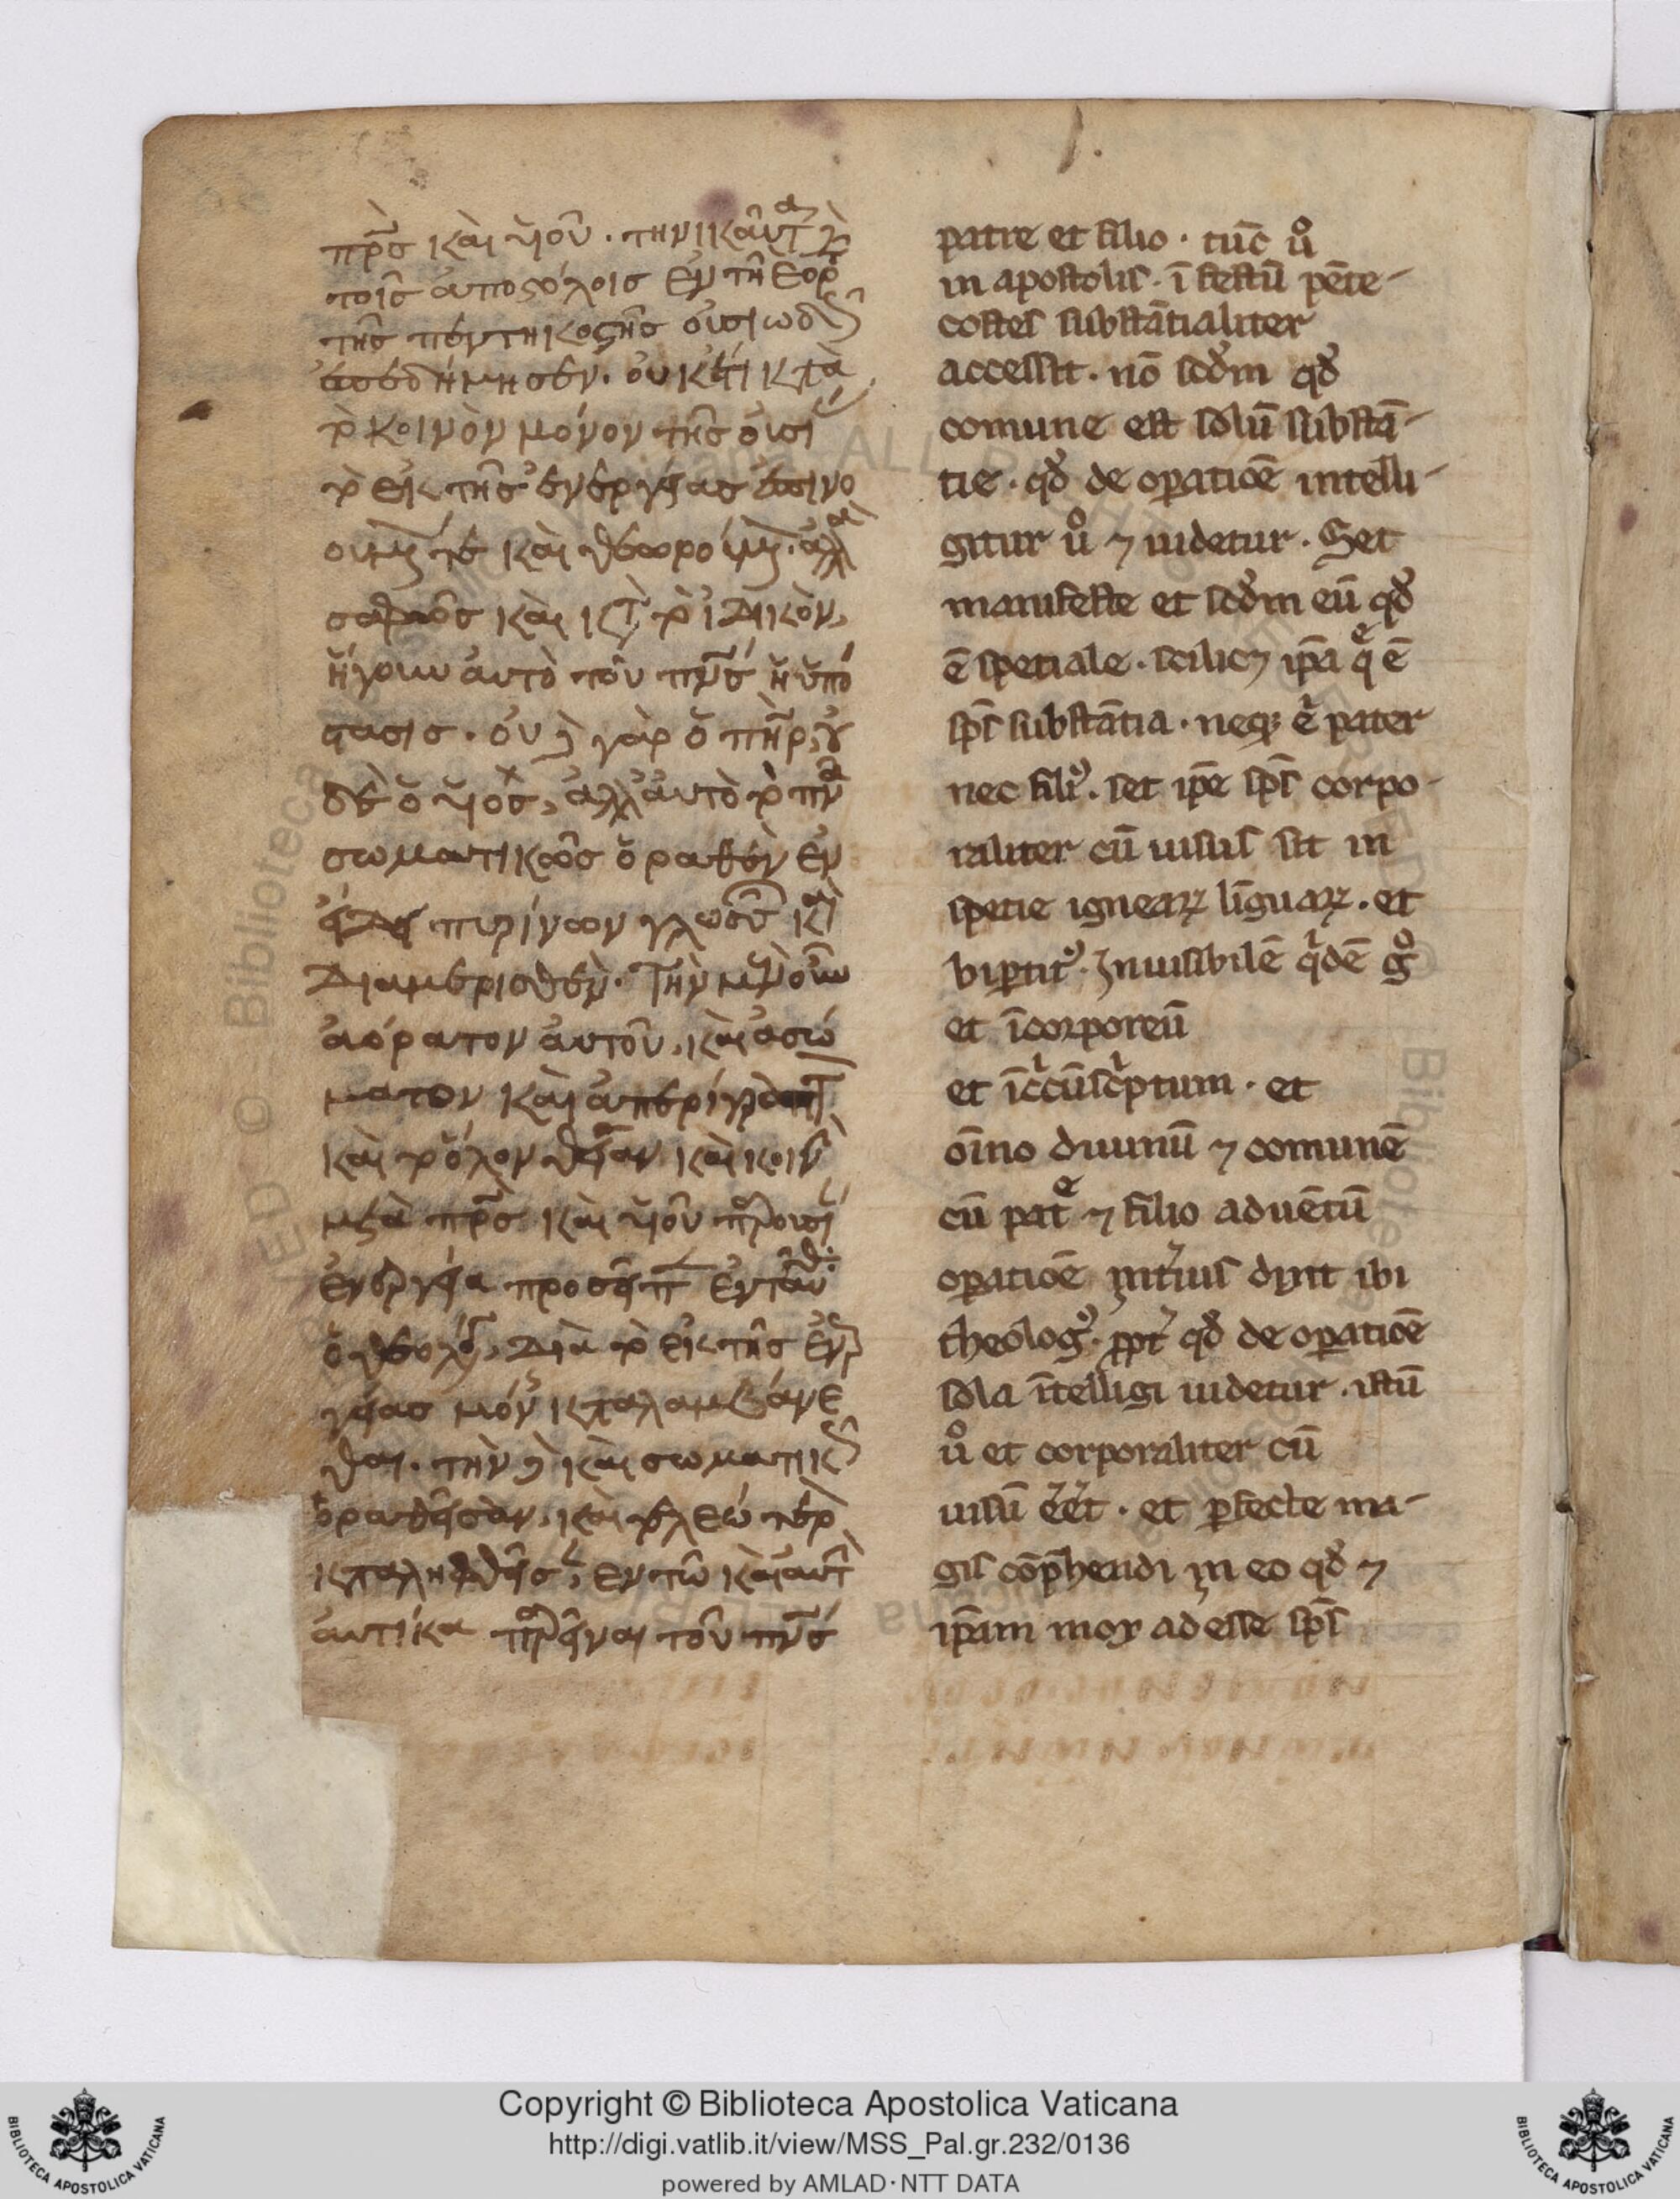 πρ̅ς καὶ υἱοῦ · τηνικαῦτα δὲ
τοῖς ἀποστόλοις ἐν τῆ ἑορτῆ
τῆς πεντηκοστῆς οὐσιωδῶς
οὐκέτι κατὰ
τὸ κοινὸν μόνον τῆς οὐσί
τὸ ἐκ τῆς ἐνεργείας
τε καὶ θεωρούμεν · ἀλλὰ
σαφῶς καὶ κατὰ τὸ ἰδικὸν,
ἤγουν αὐτὸ τοῦ πν̅ς ἡ ὑπό
στασις · οὐ δὲ γὰρ ὁ πη̅ρ, οὐ
δὲ ὁ υἱὸς, ἀλλ' αὐτὸ τὸ πν̅α
σωματικῶς ὁραθὲν ἐν
εἴδει πυρίνων γλωσσῶν καὶ
διαμερισθέν · Τὴν μὲν οὖν
ἀόρατον αὐτοῦ, καὶ ἀσώ
ματον καὶ ἀπερίγραπτον
καὶ τὸ ὅλον θείαν καὶ κοινὴν
μετὰ πρ̅ς καὶ υἱοῦ παρουσί
ἐνεργεία προσεῖπεν ἐνταῦθ :
ὁ θεολόγος, διὰ τὸ ἐκ τῆς ἐνερ
γείας μόνης καταλαμβάνε
σθαι · τὴν δὲ καὶ σωματικῶς
ὁραθεῖσαν, καὶ τελεώτερον
καταληφθεῖσαν, ἐν τῶ καὶ αὐτὴν
αὐτίκα παρεῖναι τοῦ πν̅ς
patre et filio · tūc u͛o
in apostolis · ī festū pēte-
costes substātialiter
accessit · nō scd̄m qd̄
comune est solū substā-
tie · qd̄ de oꝑatiōe intelli-
gitur u͛o ⁊ uidetur · Set
manifeste et scd̄m eū qd̄
ē spetiale · scilicꝫ ip̄a qͤ ē
sp̄s substātia · neqꝫ e͛ pater
nec filiꝰ · set ip̄e sp̄s corpo-
raliter cū uisus sit in
spetie ignearꝝ līguarꝝ · et
biꝑtitꝰ · Inuisibilē qͥdē gͦ
et īcorporeū
et īcͥcūscͥptum · et
oīno diuinū ⁊ comunē
cū patͤ ⁊ filio aduētū
oꝑatiōe dixit ibi
theologꝰ · ꝓpt͛ qd̄ de oꝑatiōe
sola ītelligi uidetur · istū
u͛o et corporaliter cū
uisū e͛e͛t · et ꝑfecte ma-
gis cōp̄hendi in eo qd̄ ⁊
ip̄am mox adesse sp̄s
Copyright © Biblioteca Apostolica Vaticana
http://digi.vatlib.it/view/MSS_Pal.gr.232/0136
powered by AMLAD·NTT DATA
BIBLIOTECA APOSTOLICA VATICANA
BIBLIOTECA APOSTOLICA VATICANA